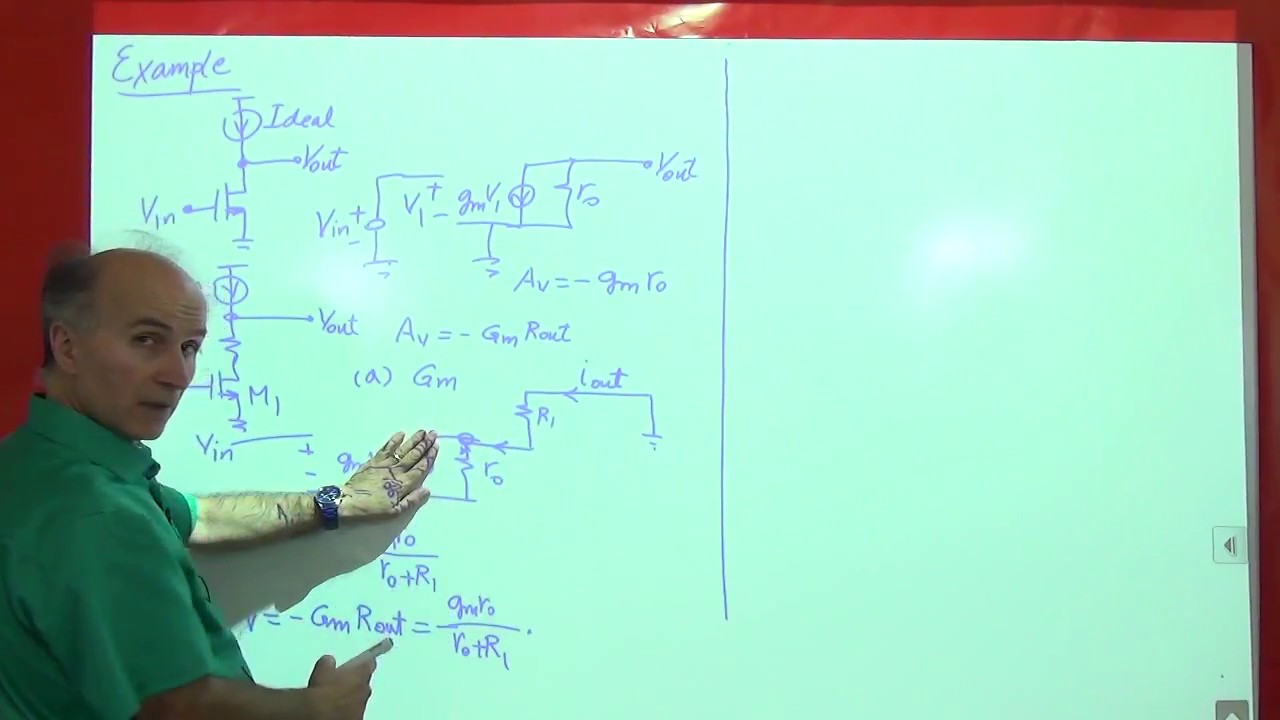 Example
Ideal
Vout
Vin
Vin + -
V1 + -
gmV1
ro
Vout
Av = - gm ro
Vout
Av = - Gm Rout
(a) Gm
M1
iout
R1
Vin
+
-
ro
ro
ro+R1
= - Gm Rout = gmro / ro+R1 .